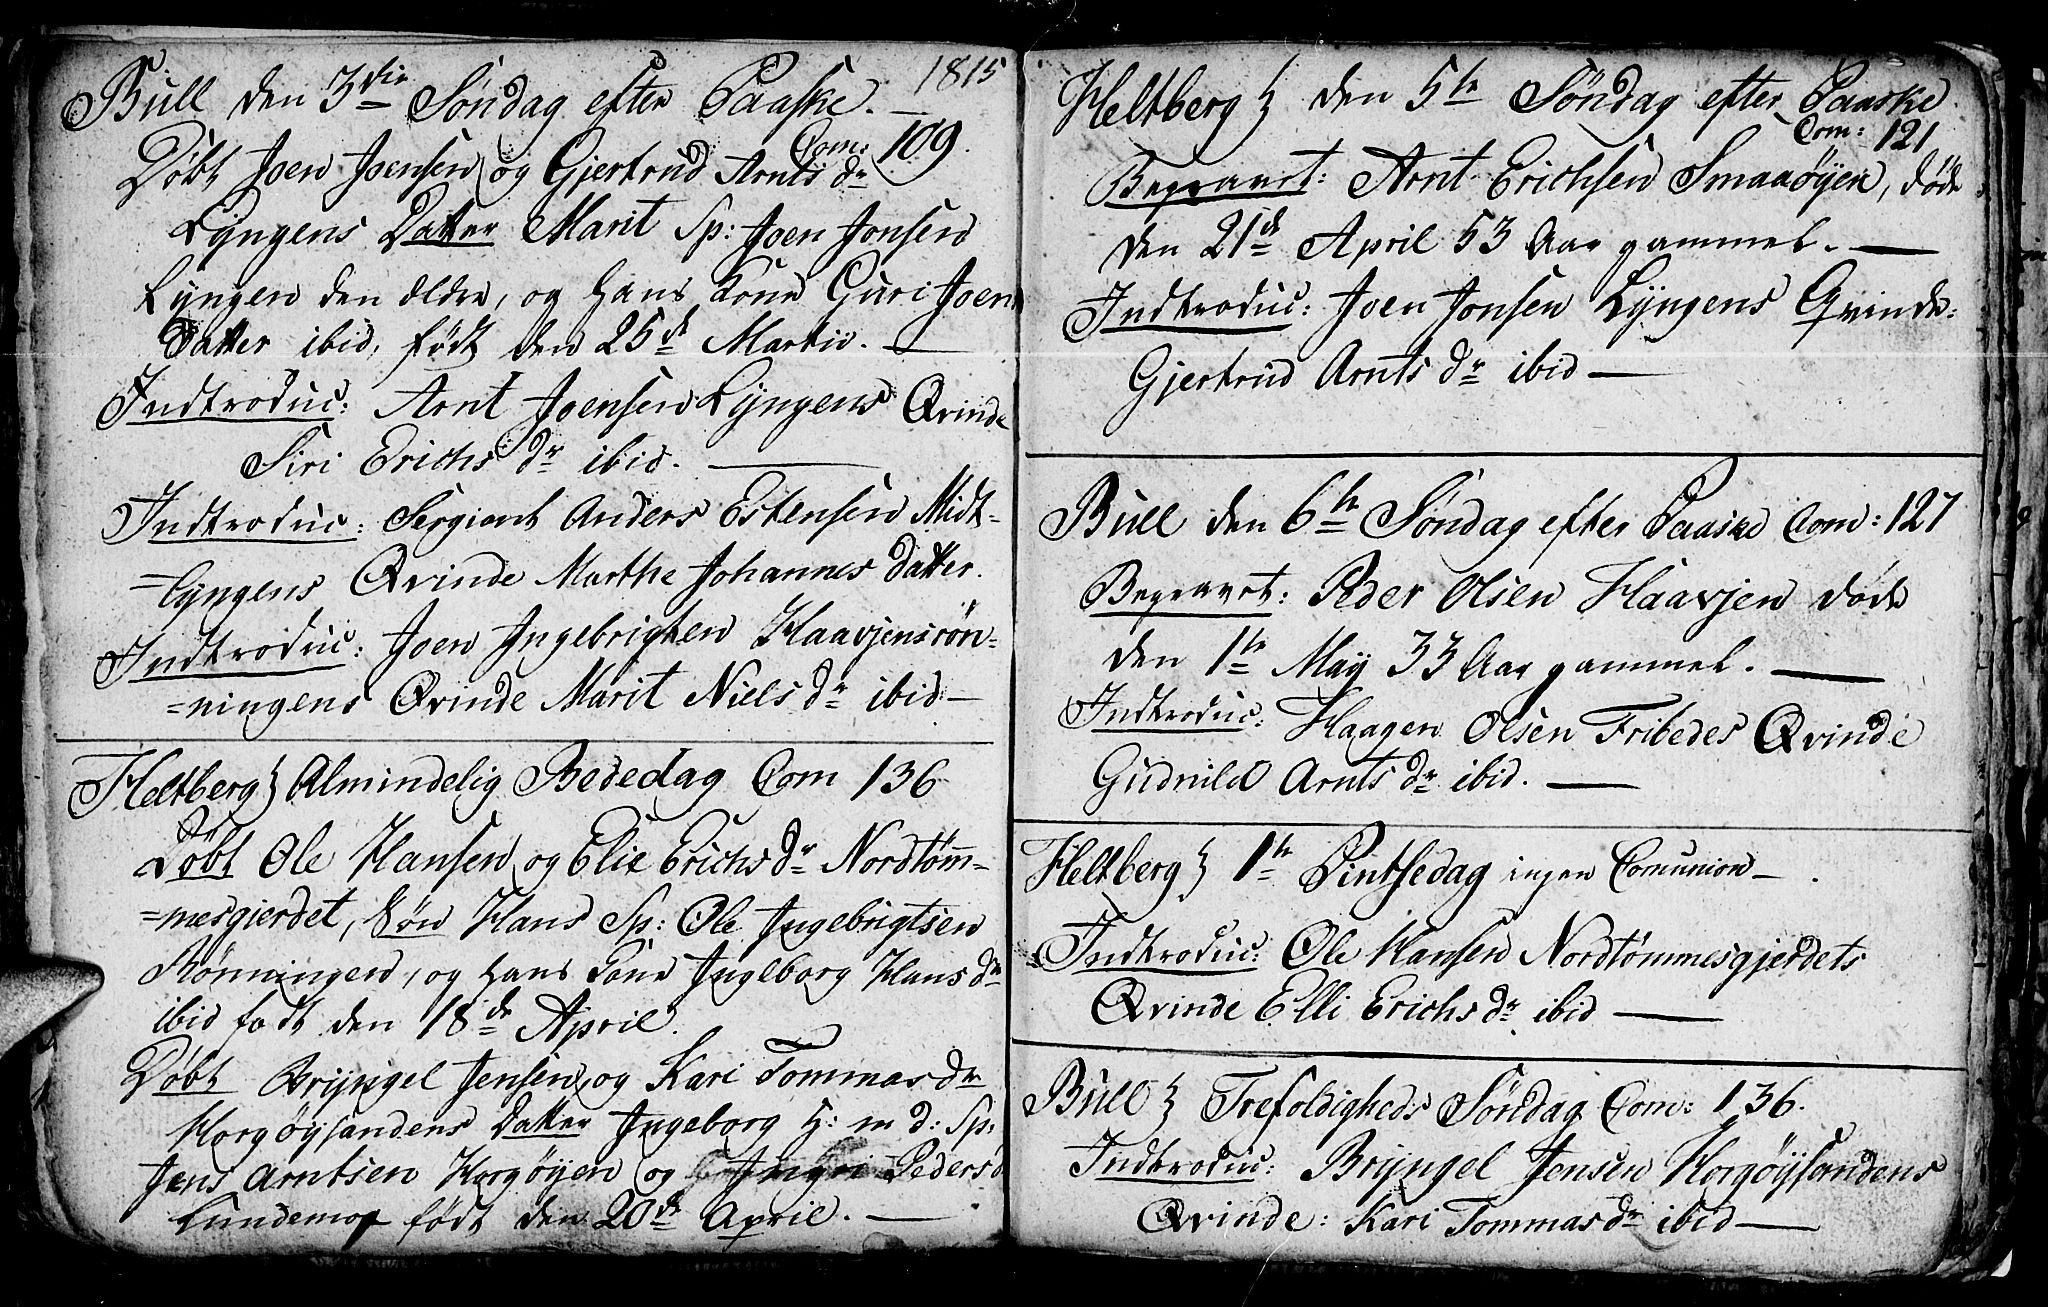 1815
Bull den 3die Søndag efter Paaske. —
Com: 109.
Døbt Joen Joensen og Gjertrud Arnts dr
Lyngens Datter Marit Sp: Joen Jonsen
Lyngen den ældre, og hans Kone Guri Joens
Datter ibid, født den 25de Martii. —
Indtroduc: Arnt Joensen Lyngens Qvinde
Siri Erichs dr ibid. —
Indtroduc: Sergiant Anders Estensen Midt-
=lyngens Qvinde Marthe Johannes Datter.
Indtroduc: Joen Ingebrigtsen Haavjensrøn-
=ningens Qvinde Marit Niels dr ibid —
Heltberg } Almindelig Bededag Com 136
Døbt Ole Hansen og Elie Erichs dr Nordtøm-
=mesgjerdet, Søn Hans Sp: Ole Ingebrigtsen
Rønningen, og hans Kone Ingeborg Hans dr
ibid født den 18de April.
Døbt Bryngel Jensen, og Kari Tommas dr
Horgøysandens Datter Ingeborg H: m d: Sp:
Jens Arntsen Horgøyen og Ingri Pedersd
Lundemo født den 20de April. —
Heltberg } den 5te Søndag efter Paaske
Com: 121
Begravet: Arnt Erichsen Smaaøyen, døde
den 21de April 53 Aar gammel. —
Indtroduc: Joen Jonsen Lyngens Qvinde:
Gjertrud Arnts dr ibid —
Bull den 6te Søndag efter Paaske Com: 127
Begravet: Peder Olsen Haavjen døde
den 1te May 33 Aar gammel. —
Indtroduc: Haagen Olsen Fribedes Qvinde
Gudnild Arnts dr ibid. —
Heltberg } 1te Pintsedag ingen Comunion —.
Indtroduc: Ole Hansen Nordtømmesgjerdets
Qvinde Elli Erichs dr ibid —
Bull } Trefoldigheds Søndag Com: 136.
Indtroduc: Bryngel Jensen Horgøysandens
Qvinde: Kari Tommas dr ibid —